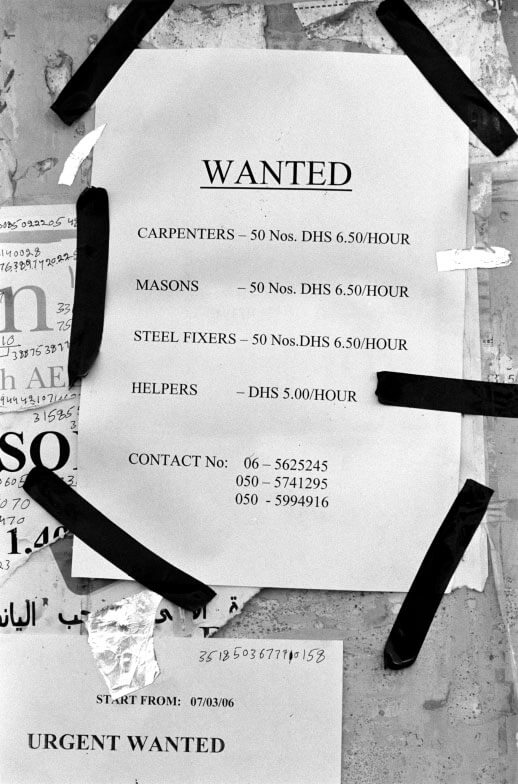 WANTED
CARPENTERS – 50 Nos. DHS 6.50/HOUR
MASONS – 50 Nos. DHS 6.50/HOUR
STEEL FIXERS – 50 Nos.DHS 6.50/HOUR
HELPERS – DHS 5.00/HOUR
CONTACT No: 06 – 5625245
050 – 5741295
050 - 5994916
n
h AE
SO
1.4
اليان
START FROM: 07/03/06
URGENT WANTED